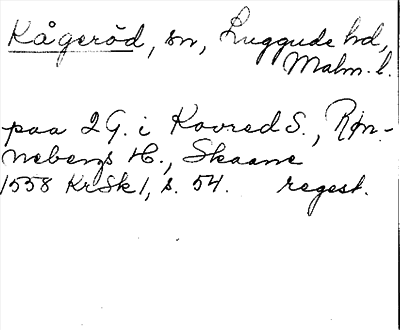 Kågeröd, sn, Luggude hd,
Malm. l.
paa 2 G. i Kovred S., Røn-
nebergs H., Skaane
1558 KrSk 1, s. 54. regest.